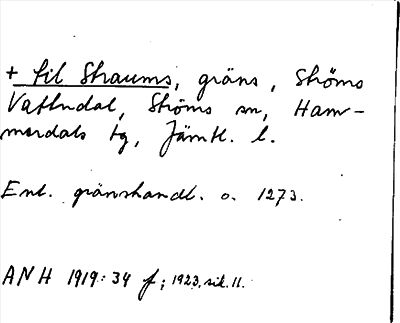 + til Straums, gräns, Ströms
Vattudal, Ströms sn, Ham-
merdals tg, Jämtl. l.
Enl. gränshandl. o. 1273.
ANH 1919: 34 f; 1923, sid. 11.